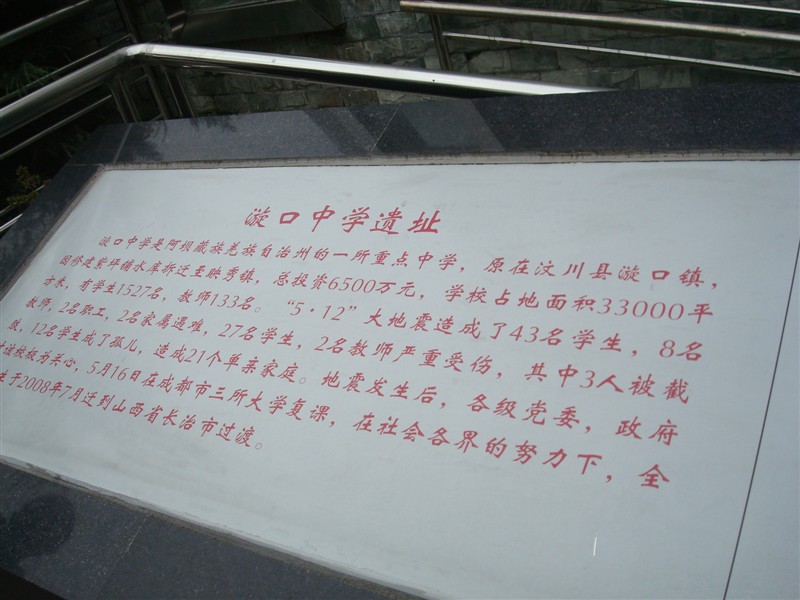 漩口中学遗址
漩口中学是阿坝藏族羌族自治州的一所重点中学，原在汶川县漩口镇，
因修建紫坪铺水库拆迁至映秀镇，总投资6500万元，学校占地面积33000平
方米，有学生1527名，教师133名。“5·12”大地震造成了43名学生，8名
教师，2名职工，2名家属遇难，27名学生，2名教师严重受伤，其中3人被截
肢，12名学生成了孤儿，造成21个单亲家庭。地震发生后，各级党委，政府
对该校极为关心，5月16日在成都市三所大学复课，在社会各界的努力下，全
于2008年7月迁到山西省长治市过渡。